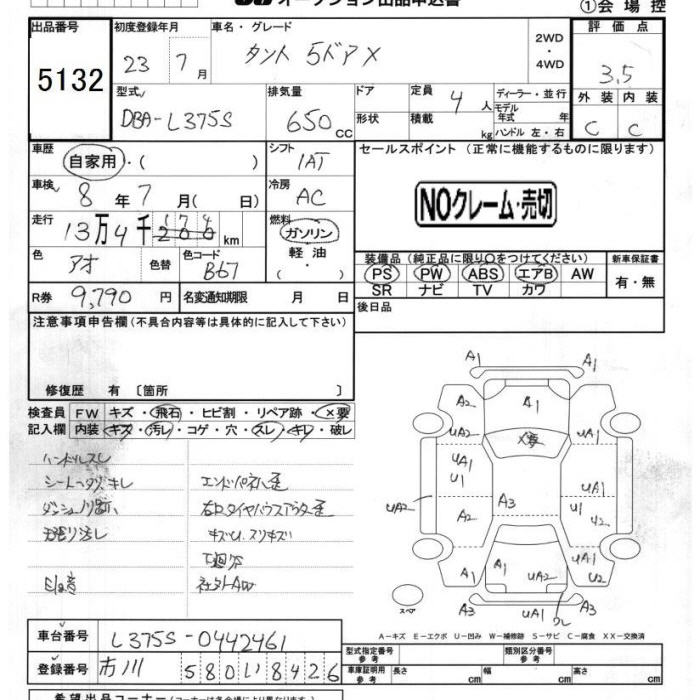 オークション出品申込書
①会場控
出品番号 5132
初度登録年月 23 7月
車名・グレード タント 5ドアX
2WD・4WD
評価点 3.5
外装 C 内装 C
型式 DBA-L375S
排気量 650 cc
ドア
形状
定員 4人
積載 kg
ディーラー・並行
モデル年式 年
ハンドル 左・右
車歴 自家用・( )
シフト IAT
セールスポイント (正常に機能するものに限ります)
NOクレーム・売切
車検 8年7月( 日)
冷房 AC
走行 13万4千 174 km
燃料 ガソリン・軽油・( )
色 アオ 色替
色コード B67
装備品 (純正品に限り○をつけてください)
PS PW ABS エアB AW
SR ナビ TV カワ
新車保証書 有・無
R券 9,790円
名変通知期限 月 日
後日品
注意事項申告欄 (不具合内容等は具体的に記入して下さい)
修復歴 有 〔箇所 〕
検査員記入欄
FW キズ・飛石・ヒビ割・リペア跡・×要
内装 キズ・汚レ・コゲ・穴・スレ・キレ・破レ
ハンドルスレ
シートヘタリ キレ
社外AW
A1 A1
A2 A1 A2
UA2 ×要 UA2
UA1 U1
UA2 A2 A3 UA1 U1
A1 A1 UA2 UA1 U2
スペア UA1 A2
A-キズ E-エクボ U-凹み W-補修跡 S-サビ C-腐食 XX-交換済
車台番号 L375S-0442461
登録番号 市川 580 い 8426
型式指定番号 参考
類別区分番号 参考
車庫証明用 参考 長さ cm 幅 cm 高さ cm
希望出品コーナー